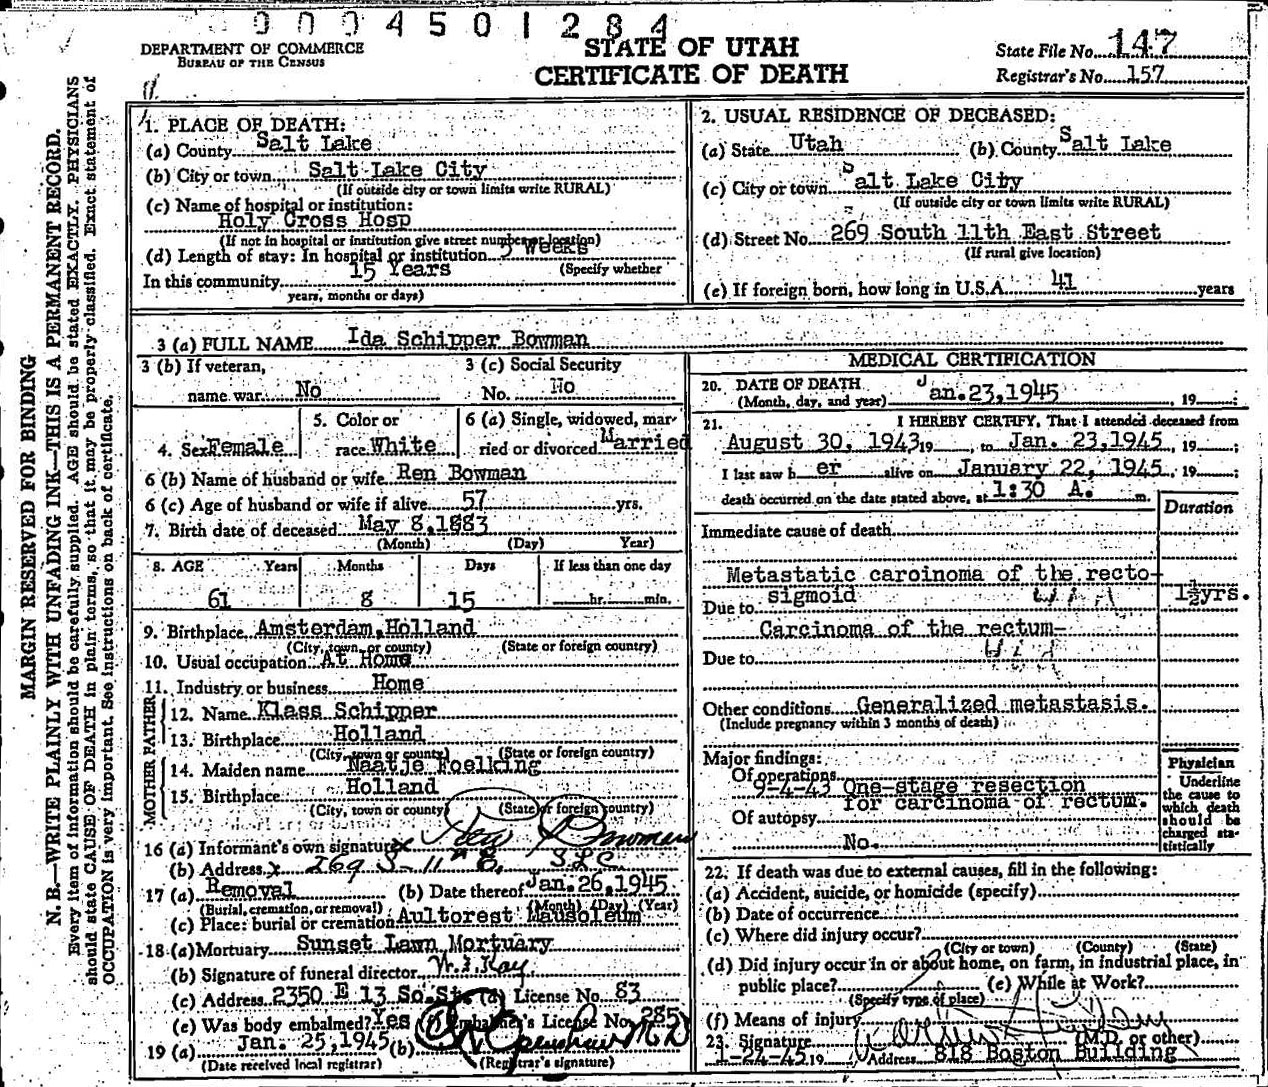 0004501284
DEPARTMENT OF COMMERCE
BUREAU OF THE CENSUS
STATE OF UTAH
CERTIFICATE OF DEATH
State File No. 147
Registrar's No. 157
MARGIN RESERVED FOR BINDING
N. B.—WRITE PLAINLY WITH UNFADING INK—THIS IS A PERMANENT RECORD.
Every item of information should be carefully supplied. AGE should be stated EXACTLY. PHYSICIANS
should state CAUSE OF DEATH in plain terms, so that it may be properly classified. Exact statement of
OCCUPATION is very important. See instructions on back of certificate.
1. PLACE OF DEATH:
(a) County Salt Lake
(b) City or town Salt Lake City
(If outside city or town limits write RURAL)
(c) Name of hospital or institution:
Holy Cross Hosp
(If not in hospital or institution give street number or location)
(d) Length of stay: In hospital or institution Weeks
In this community 15 Years (Specify whether
years, months or days)
2. USUAL RESIDENCE OF DECEASED:
(a) State Utah (b) County Salt Lake
(c) City or town Salt Lake City
(If outside city or town limits write RURAL)
(d) Street No. 269 South 11th East Street
(If rural give location)
(e) If foreign born, how long in U.S.A. 41 years
3 (a) FULL NAME Ida Schipper Bowman
3 (b) If veteran,
name war No
3 (c) Social Security
No. No
4. Sex Female
5. Color or
race White
6 (a) Single, widowed, mar-
ried or divorced Married
6 (b) Name of husband or wife Ren Bowman
6 (c) Age of husband or wife if alive 57 yrs.
7. Birth date of deceased May 8, 1883
(Month) (Day) Year)
8. AGE Years Months Days If less than one day
61 8 15 hr. min.
9. Birthplace Amsterdam, Holland
(City, town, or county) (State or foreign country)
10. Usual occupation At Home
11. Industry or business Home
FATHER
12. Name Klass Schipper
13. Birthplace Holland
(City, town or county) (State or foreign country)
MOTHER
14. Maiden name Naatje Foelking
15. Birthplace Holland
(City, town or county (State or foreign country)
16 (a) Informant's own signature x Bowman
(b) Address x 269 S - 11th E. SLC
17 (a) Removal (b) Date thereof Jan. 26, 1945
(Burial, cremation, or removal) (Month) (Day) (Year)
(c) Place: burial or cremation Aultorest Mausoleum
18 (a) Mortuary Sunset Lawn Mortuary
(b) Signature of funeral director W. F. Kay
(c) Address 2350 E 13 So. St. (d) License No. 83
(e) Was body embalmed? Yes (f) Embalmer's License No. 285
19 (a) Jan. 25, 1945 (b) M D
(Date received local registrar) (Registrar's signature)
MEDICAL CERTIFICATION
20. DATE OF DEATH Jan. 23, 1945
(Month, day, and year) , 19 ;
21. I HEREBY CERTIFY, That I attended deceased from
August 30, 1943 19 , to Jan. 23, 1945 , 19 ;
I last saw h er alive on January 22, 1945 , 19 ;
death occurred on the date stated above, at 1:30 A. m.
Duration
Immediate cause of death
Metastatic carcinoma of the recto-
sigmoid 1½ yrs.
Due to
Carcinoma of the rectum-
Due to
Other conditions Generalized metastasis.
(Include pregnancy within 3 months of death)
Major findings:
Of operations
9-4-43 One-stage resection
for carcinoma of rectum.
Of autopsy
No.
Physician
Underline
the cause to
which death
should be
charged sta-
tistically
22. If death was due to external causes, fill in the following:
(a) Accident, suicide, or homicide (specify)
(b) Date of occurrence
(c) Where did injury occur?
(City or town) (County) (State)
(d) Did injury occur in or about home, on farm, in industrial place, in
public place? (e) While at Work?
(Specify type of place)
(f) Means of injury
23. Signature (M.D. or other)
1-24-45 19 Address 818 Boston Building